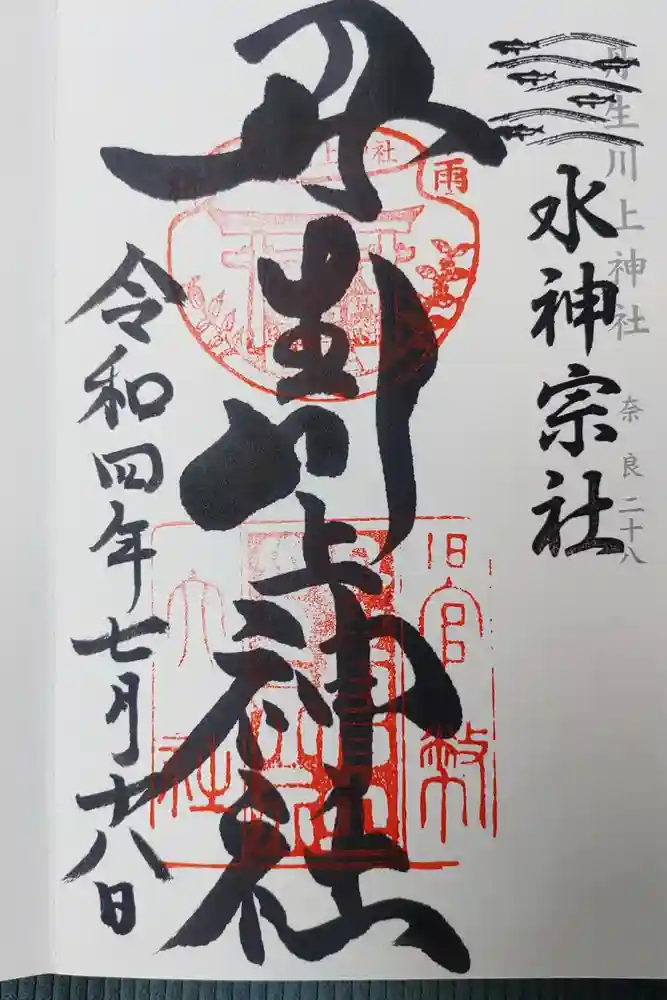 丹生川上神社 奈良二十八
水神宗社
丹生川上神社
令和四年七月十八日
雨
上神社
旧官幣
大社